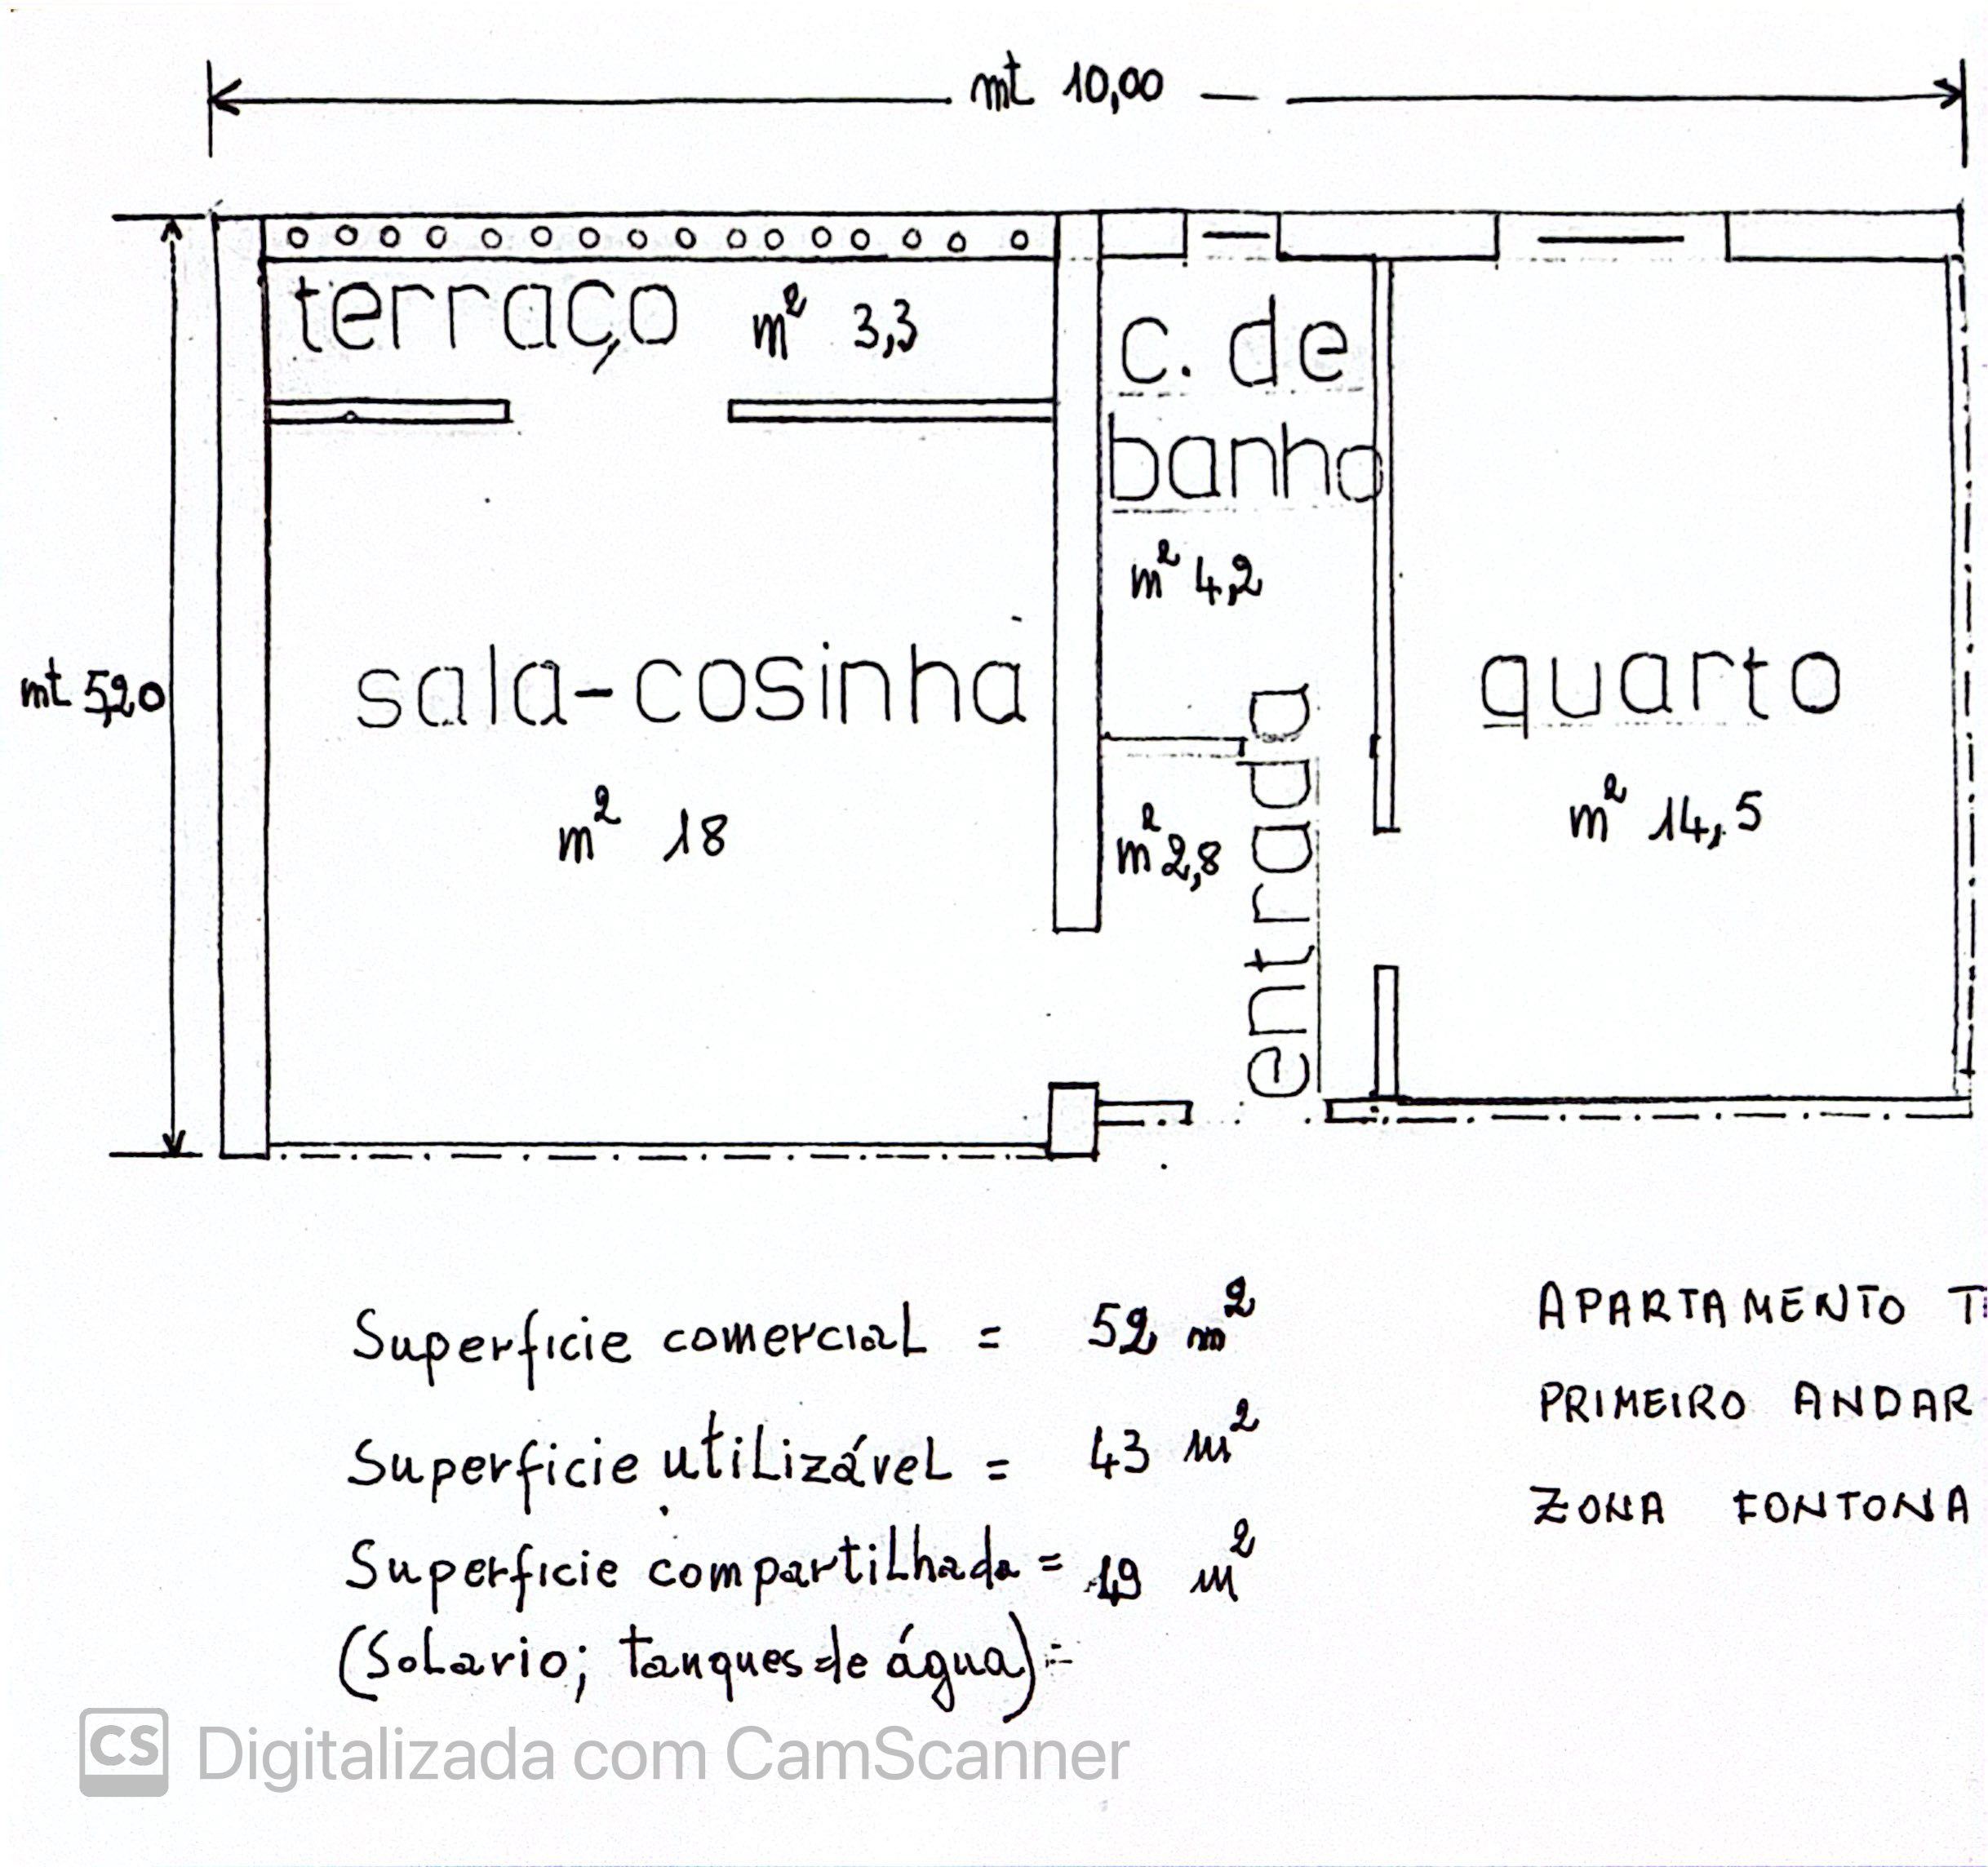 mt 10,00
terraço m² 3,3
c. de
banho
m² 4,2
mt 5,20
sala-cosinha
m² 18
entrada
m² 2,8
quarto
m² 14,5
Superficie comercial = 52 m²
Superficie utilizável = 43 m²
Superficie compartilhada = 19 m²
(Solario; tanques de água) =
APARTAMENTO T
PRIMEIRO ANDAR
ZONA FONTONA
CS Digitalizada com CamScanner